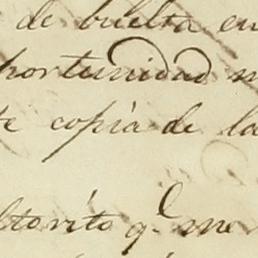 de buelta en
portunidad
te copia de la
q.^e me